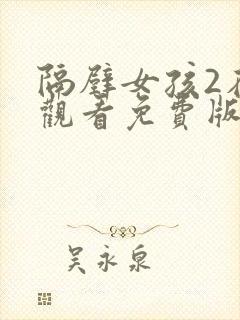 隔壁女孩2
觀看免費版
吳永泉